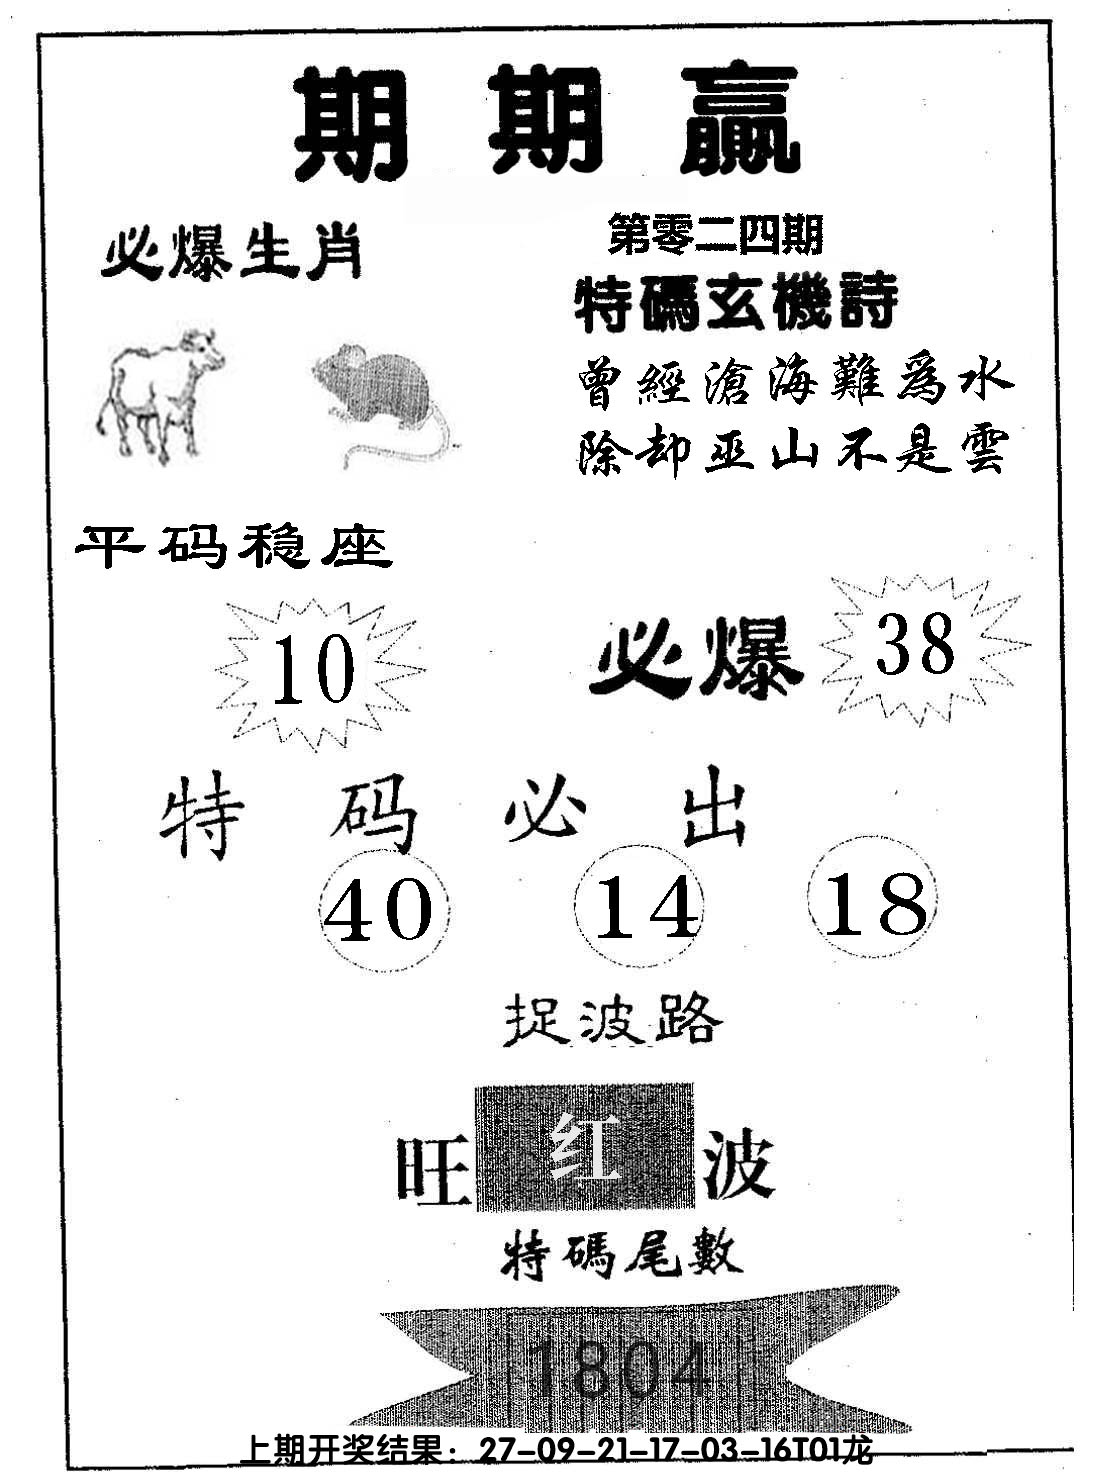 期期贏
必爆生肖
第零二四期
特碼玄機詩
曾經滄海難為水
除却巫山不是雲
平码稳座
10
必爆
38
特码必出
40 14 18
捉波路
旺红波
特碼尾數
1804
上期开奖结果：27-09-21-17-03-16T01龙